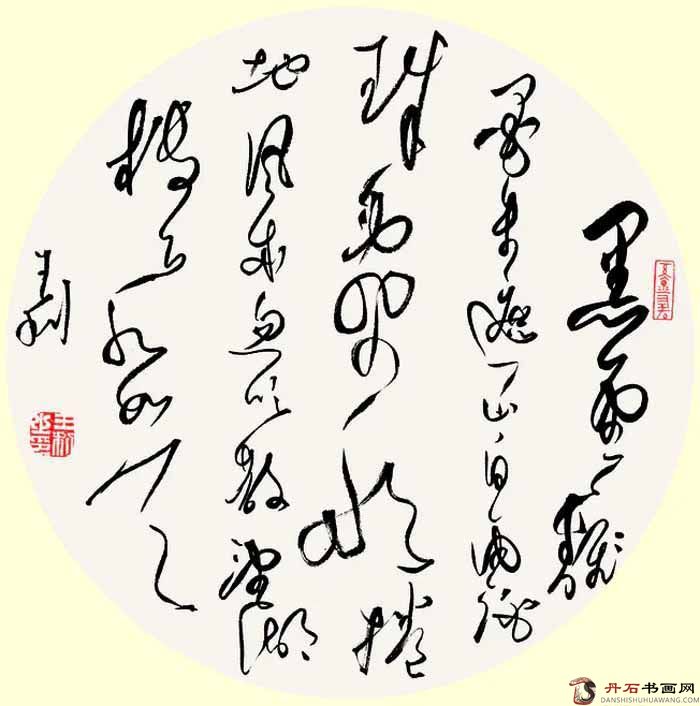 黑雲翻
墨未遮山白雨跳
珠亂入船捲
地風來忽吹散望湖
樓下水如天
丹石书画网
DANSHISHUHUAWANG.COM